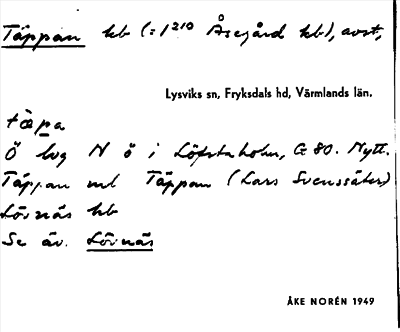 Täppan hb (=1²¹⁰ Åsegård hb), avst,
Lysviks sn, Fryksdals hd, Värmlands län.
tä̀pa
Ö bvg N ö i Löfstaholm, G 80. Nytt.
Täppan ml Täppan (Lars Svenssäter)
Lövnäs hb
Se äv. Lövnäs
ÅKE NORÉN 1949